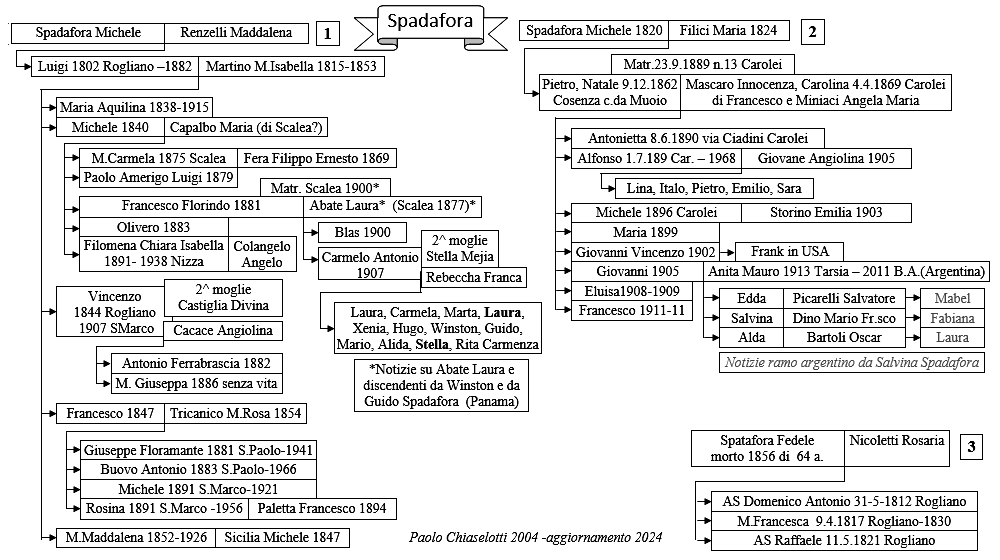 Spadafora
Spadafora Michele
Renzelli Maddalena
1
Luigi 1802 Rogliano –1882
Martino M.Isabella 1815-1853
Maria Aquilina 1838-1915
Michele 1840
Capalbo Maria (di Scalea?)
M.Carmela 1875 Scalea
Fera Filippo Ernesto 1869
Paolo Amerigo Luigi 1879
Matr. Scalea 1900*
Francesco Florindo 1881
Abate Laura* (Scalea 1877)*
Olivero 1883
Filomena Chiara Isabella
1891- 1938 Nizza
Colangelo
Angelo
Blas 1900
Carmelo Antonio
1907
2^ moglie
Stella Mejia
Rebeccha Franca
Laura, Carmela, Marta, Laura,
Xenia, Hugo, Winston, Guido,
Mario, Alida, Stella, Rita Carmenza
*Notizie su Abate Laura e
discendenti da Winston e da
Guido Spadafora (Panama)
Vincenzo
1844 Rogliano
1907 SMarco
2^ moglie
Castiglia Divina
Cacace Angiolina
Antonio Ferrabrascia 1882
M. Giuseppa 1886 senza vita
Francesco 1847
Tricanico M.Rosa 1854
Giuseppe Floramante 1881 S.Paolo-1941
Buovo Antonio 1883 S.Paolo-1966
Michele 1891 S.Marco-1921
Rosina 1891 S.Marco -1956
Paletta Francesco 1894
M.Maddalena 1852-1926
Sicilia Michele 1847
Spadafora Michele 1820
Filici Maria 1824
2
Matr.23.9.1889 n.13 Carolei
Pietro, Natale 9.12.1862
Cosenza c.da Muoio
Mascaro Innocenza, Carolina 4.4.1869 Carolei
di Francesco e Miniaci Angela Maria
Antonietta 8.6.1890 via Ciadini Carolei
Alfonso 1.7.189 Car. – 1968
Giovane Angiolina 1905
Lina, Italo, Pietro, Emilio, Sara
Michele 1896 Carolei
Storino Emilia 1903
Maria 1899
Giovanni Vincenzo 1902
Frank in USA
Giovanni 1905
Anita Mauro 1913 Tarsia – 2011 B.A.(Argentina)
Eluisa1908-1909
Francesco 1911-11
Edda
Picarelli Salvatore
Mabel
Salvina
Dino Mario Fr.sco
Fabiana
Alda
Bartoli Oscar
Laura
Notizie ramo argentino da Salvina Spadafora
Spatafora Fedele
morto 1856 di 64 a.
Nicoletti Rosaria
3
AS Domenico Antonio 31-5-1812 Rogliano
M.Francesca 9.4.1817 Rogliano-1830
AS Raffaele 11.5.1821 Rogliano
Paolo Chiaselotti 2004 -aggiornamento 2024